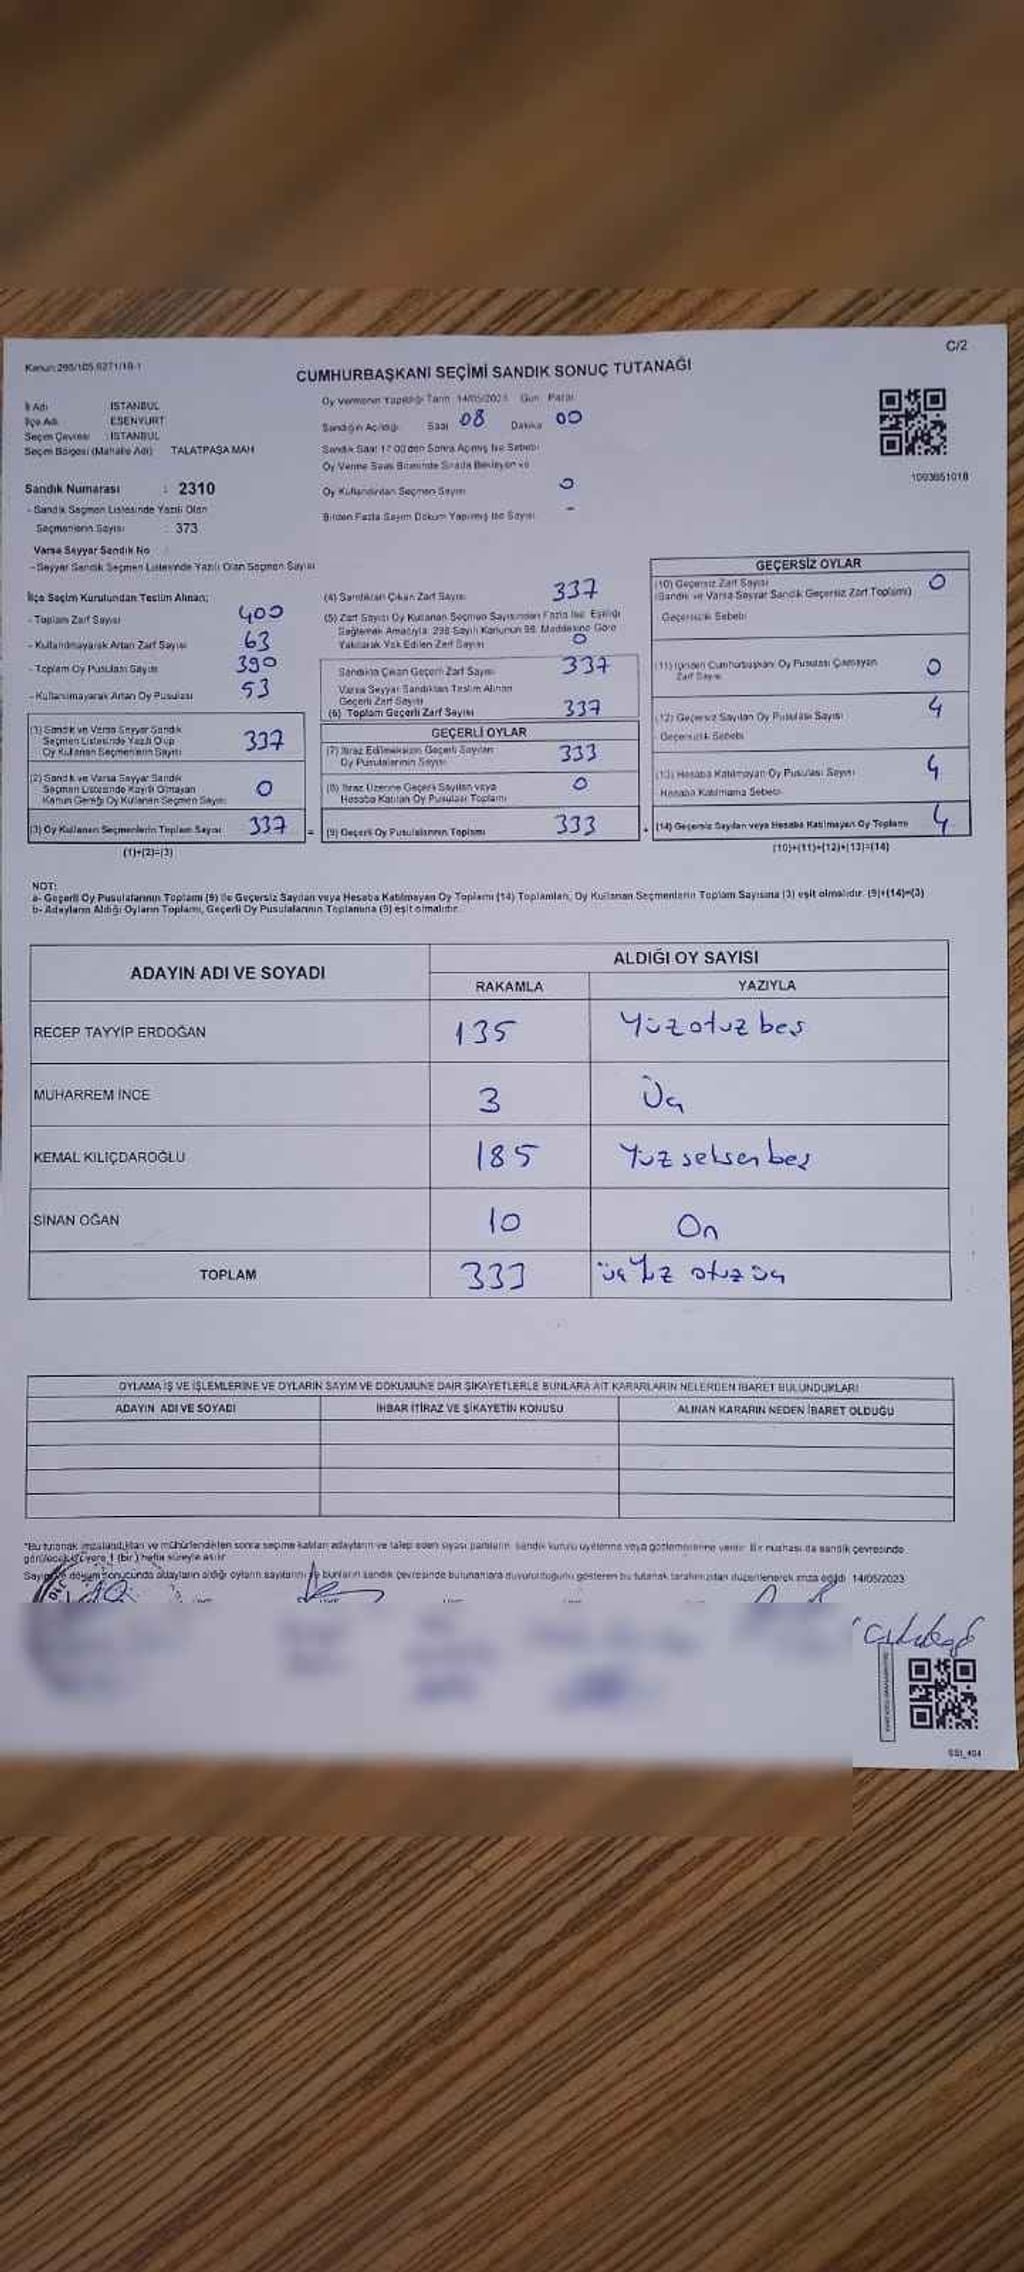 C/2
Kanun:298/105,6271/18-1
CUMHURBAŞKANI SEÇİMİ SANDIK SONUÇ TUTANAĞI
İl Adı : İSTANBUL
İlçe Adı : ESENYURT
Seçim Çevresi : İSTANBUL
Seçim Bölgesi (Mahalle Adı) TALATPAŞA MAH
Sandık Numarası : 2310
- Sandık Seçmen Listesinde Yazılı Olan
Seçmenlerin Sayısı : 373
Varsa Seyyar Sandık No
- Seyyar Sandık Seçmen Listesinde Yazılı Olan Seçmen Sayısı
Oy Vermenin Yapıldığı Tarih: 14/05/2023 Gün: Pazar
Sandığın Açıldığı Saat 08 Dakika 00
Sandık Saat 17:00'den Sonra Açılmış İse Sebebi
Oy Verme Saati Bitiminde Sırada Bekleyen ve
Oy Kullandırılan Seçmen Sayısı 0
Birden Fazla Sayım Döküm Yapılmış İse Sayısı -
1093651018
İlçe Seçim Kurulundan Teslim Alınan;
- Toplam Zarf Sayısı 400
- Kullanılmayarak Artan Zarf Sayısı 63
- Toplam Oy Pusulası Sayısı 390
- Kullanılmayarak Artan Oy Pusulası 53
(1) Sandık ve Varsa Seyyar Sandık
Seçmen Listesinde Yazılı Olup
Oy Kullanan Seçmenlerin Sayısı 337
(2) Sandık ve Varsa Seyyar Sandık
Seçmen Listesinde Kayıtlı Olmayan
Kanun Gereği Oy Kullanan Seçmen Sayısı 0
(3) Oy Kullanan Seçmenlerin Toplam Sayısı 337 =
(1)+(2)=(3)
(4) Sandıktan Çıkan Zarf Sayısı 337
(5) Zarf Sayısı Oy Kullanan Seçmen Sayısından Fazla İse, Eşitliği
Sağlamak Amacıyla, 298 Sayılı Kanunun 98. Maddesine Göre
Yakılarak Yok Edilen Zarf Sayısı 0
Sandıkta Çıkan Geçerli Zarf Sayısı 337
Varsa Seyyar Sandıktan Teslim Alınan
Geçerli Zarf Sayısı
(6) Toplam Geçerli Zarf Sayısı 337
GEÇERLİ OYLAR
(7) İtiraz Edilmeksizin Geçerli Sayılan
Oy Pusulalarının Sayısı 333
(8) İtiraz Üzerine Geçerli Sayılan veya
Hesaba Katılan Oy Pusulası Toplamı 0
(9) Geçerli Oy Pusulalarının Toplamı 333 +
GEÇERSİZ OYLAR
(10) Geçersiz Zarf Sayısı 0
(Sandık ve Varsa Seyyar Sandık Geçersiz Zarf Toplamı)
Geçersizlik Sebebi
(11) İçinden Cumhurbaşkanı Oy Pusulası Çıkmayan
Zarf Sayısı 0
(12) Geçersiz Sayılan Oy Pusulası Sayısı 4
Geçersizlik Sebebi
(13) Hesaba Katılmayan Oy Pusulası Sayısı 4
Hesaba Katılmama Sebebi
(14) Geçersiz Sayılan veya Hesaba Katılmayan Oy Toplamı 4
(10)+(11)+(12)+(13)=(14)
NOT:
a- Geçerli Oy Pusulalarının Toplamı (9) ile Geçersiz Sayılan veya Hesaba Katılmayan Oy Toplamı (14) Toplamları, Oy Kullanan Seçmenlerin Toplam Sayısına (3) eşit olmalıdır. (9)+(14)=(3)
b- Adayların Aldığı Oyların Toplamı, Geçerli Oy Pusulalarının Toplamına (9) eşit olmalıdır.
ADAYIN ADI VE SOYADI
ALDIĞI OY SAYISI
RAKAMLA YAZIYLA
RECEP TAYYİP ERDOĞAN 135 Yüzotuz beş
MUHARREM İNCE 3 Üç
KEMAL KILIÇDAROĞLU 185 Yüz seksen beş
SİNAN OĞAN 10 On
TOPLAM 333 üçYüz otuz üç
OYLAMA İŞ VE İŞLEMLERİNE VE OYLARIN SAYIM VE DÖKÜMÜNE DAİR ŞİKAYETLERLE BUNLARA AİT KARARLARIN NELERDEN İBARET BULUNDUKLARI
ADAYIN ADI VE SOYADI İHBAR İTİRAZ VE ŞİKAYETİN KONUSU ALINAN KARARIN NEDEN İBARET OLDUĞU
*Bu tutanak imzalandıktan ve mühürlendikten sonra seçime katılan adayların ve talep eden siyasi partilerin, sandık kurulu üyelerine veya gözlemcilerine verilir. Bir nüshası da sandık çevresinde
görülecek bir yere 1 (bir) hafta süreyle asılır.
Sayım ve döküm sonucunda adayların aldığı oyların sayılarını ve bunların sandık çevresinde bulunanlara duyurulduğunu gösteren bu tutanak tarafımızdan düzenlenerek imza edildi. 14/05/2023
SSI_404